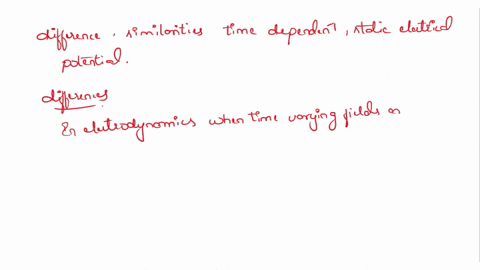 difference, similarities time dependent, static electrical
potential.
differences
In eleteodynamics when time varying fields ar